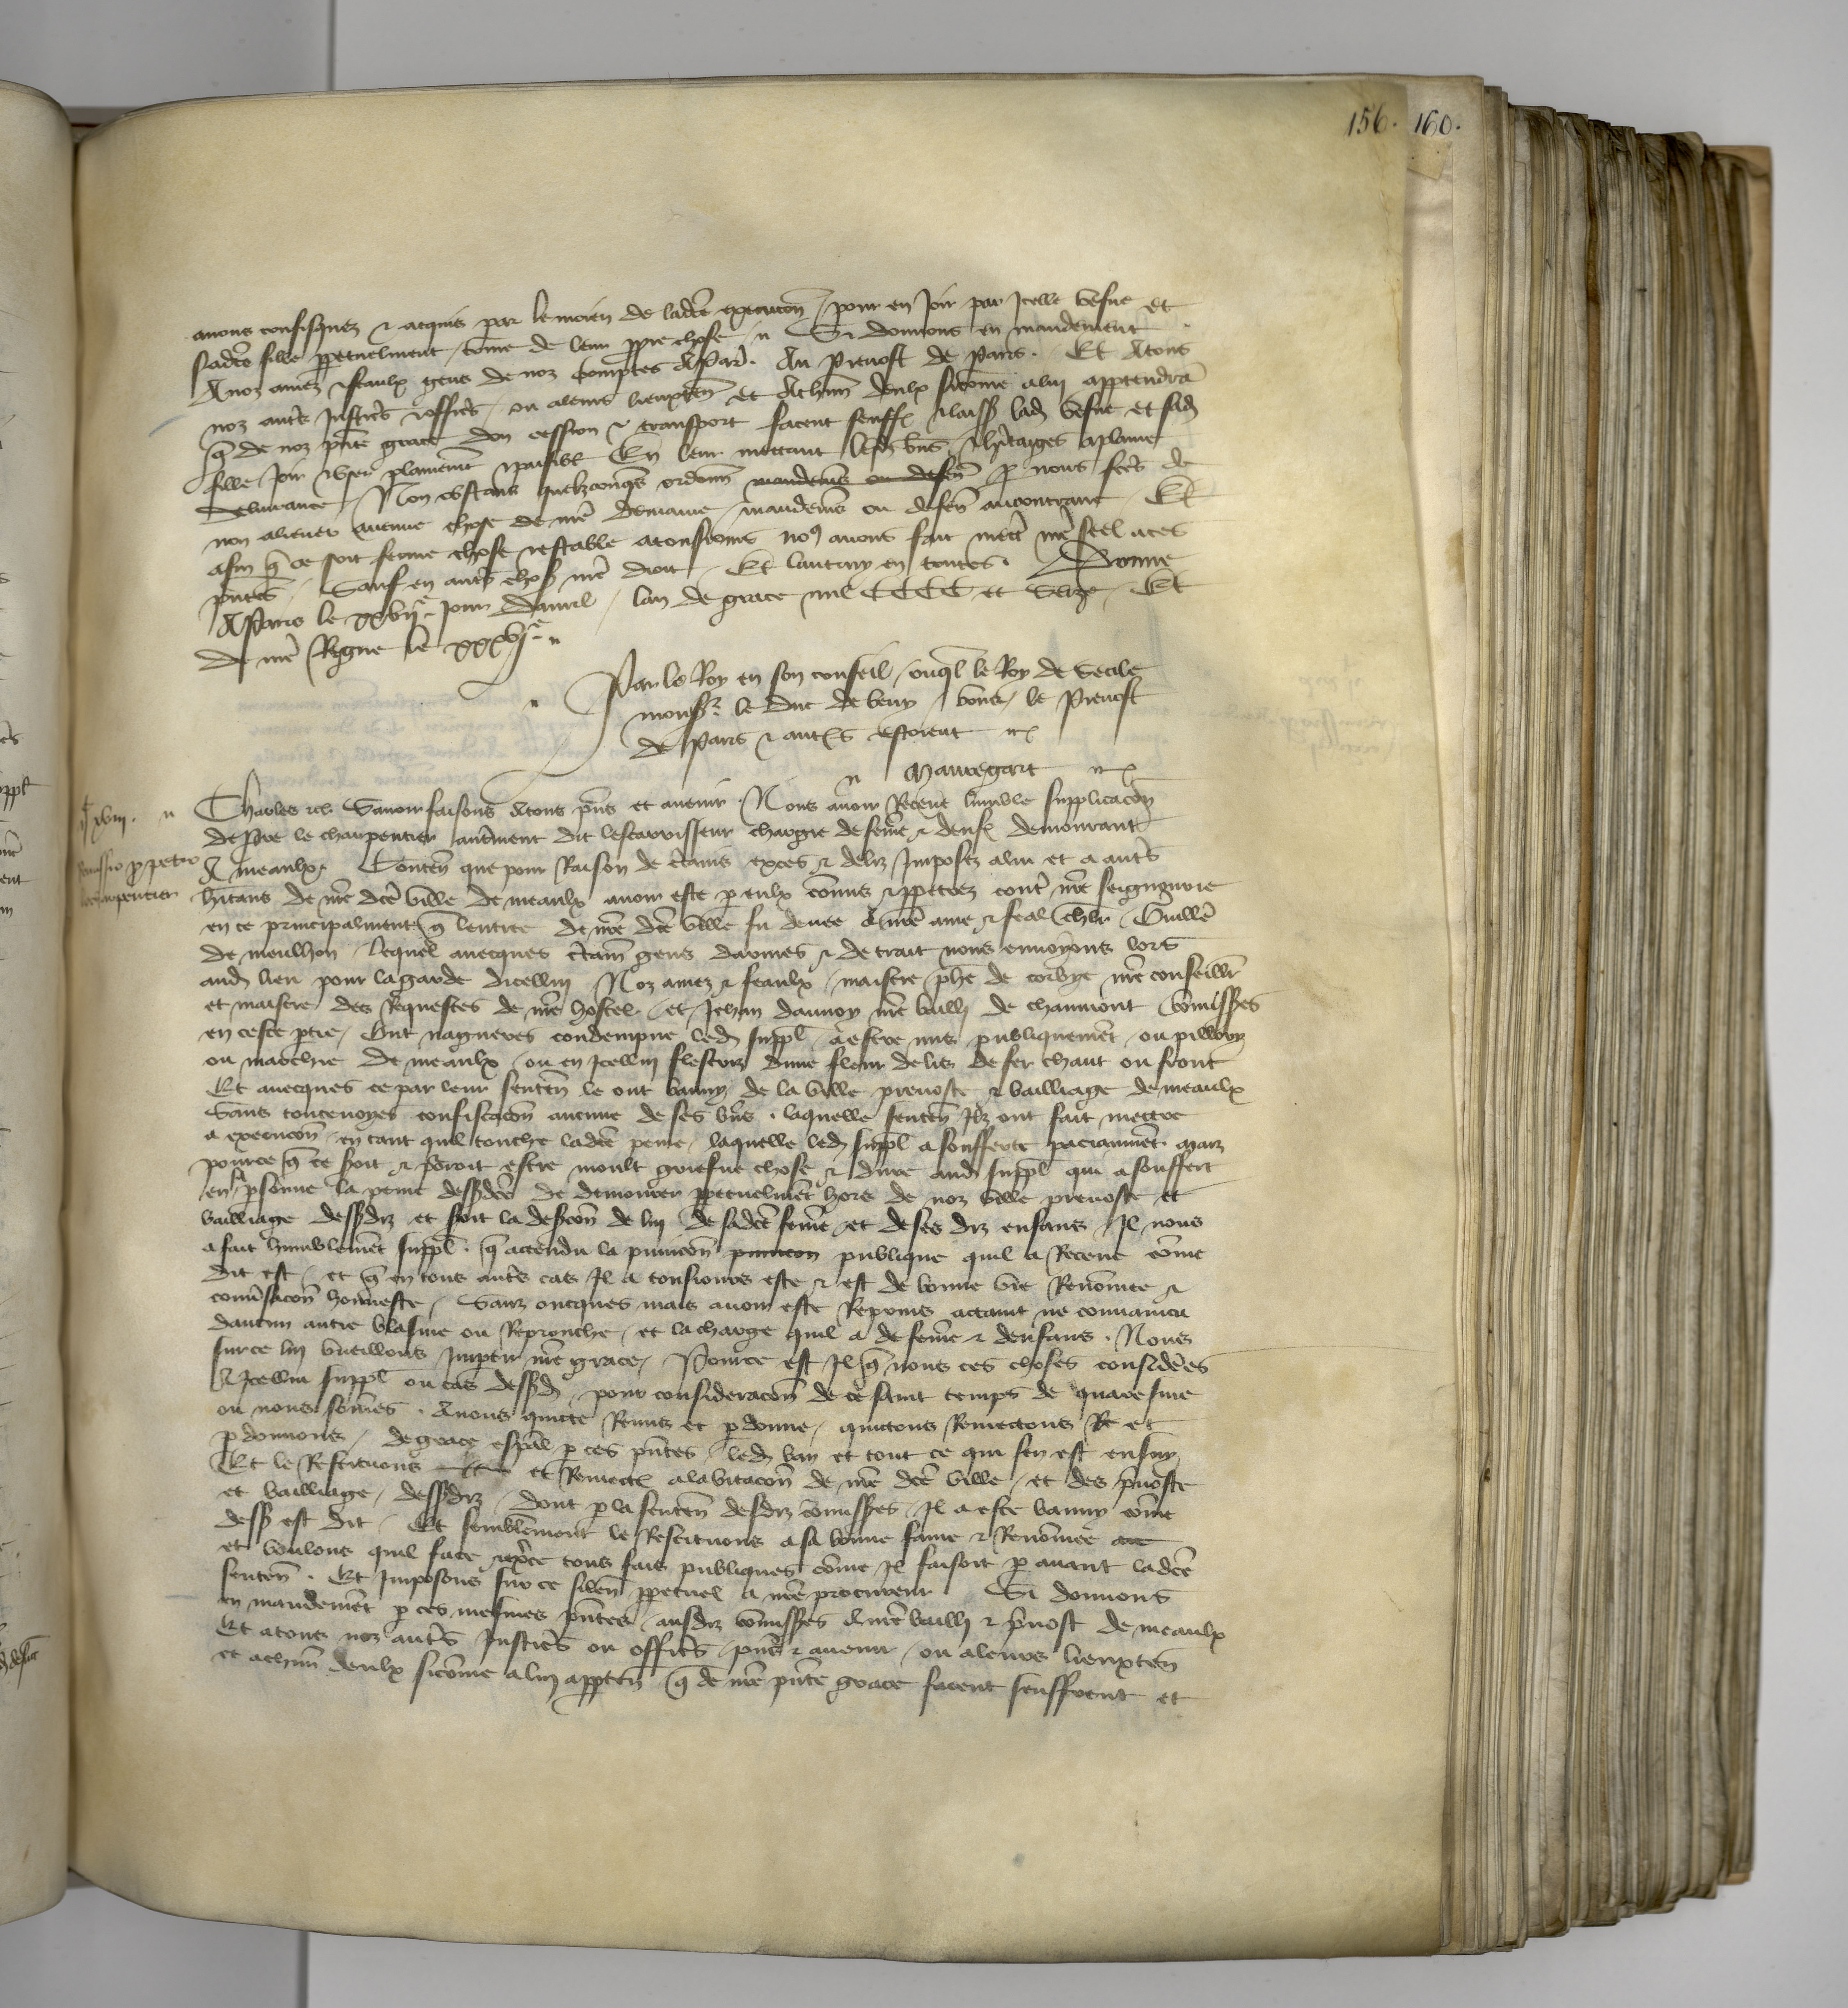 156. 160.
avons confisquez et acquis par le moien de ladcē execucōn / pour en joir par icelle vefue et
sadcē fille ppetuelment / cōme de leur ppre chose / Si donnons en mandement
A noz amez et feaulx gens de noz comptes A Par̄. Au Prevost de Paris. Et A tous
noz autrēs justicēs et officēs / ou a leurs lieuxten̄ et A chūn deulx sicōme a lui appendrā
q̄ de noz pn̄te grace don cession et transport facent seuffr̄ et laiss̄ lad̄ vefue et sad̄
fille joir et user plainemēt et paisibl̄ En leur mettant lesd̄ biēs et hēritaiges a plaine
delivrance / Non obstans quelzconq̄s ordonn̄ mandemēs ou defen̄ p nous fctēs de
non aliener aucune chose de nrē demaine / mandemēs ou defen̄ au contraire / Et
afin q̄ ce soit ferme chose et estable a tousjours noꝰ avons fait mettrē nrē seel a ces
pn̄tes / Sauf en autrēs chos̄ nrē droit / Et lautruy en toutes. Donne
A Paris le xxvijᵉ jour davril / lan de grace mil CCCC et seize / Et
de nrē Regne le xxxvjᵉ
Par le Roy en son conseil / ouq̄l le Roy de Secile
monss̄ʳ le duc de berry / vous / le Prevost
de Paris et autrēs estoient
Mauregart
xviij.
Remissio p petro
le charpentier
Charles etc̄ Savoir faisons A tous pn̄s et avenir / Nous avoir Receue lumble supplicacōn
de Pierre le charpentier autrēment dit lescarrisseur chargie de femē et denfs̄ demourant
A meaulx / Conten̄ que pour Raison de cētains exces et deliz imposez a lui et a autrēs
hītans de nrē dcē ville de meaulx avoir este p eulx cōmis et ppetrez contrē nrē seignourie
en ce principalment q̄ lentree de nrē dcē ville fu denee A nrē ame et feal chlr̄ / Guille̅
de meulhon / lequel avecques cētain̄ gens darmes et de trait nous envoyons lors
aud̄ lieu pour la garde dicellui / Noz amez et feaulx / maistre phē de corbye nrē conseiller̄
et maistre des Requestes de nrē hostel / et Jehan daunoy nrē bailli de chaumont cōmisses̄
en ceste ptie / Ont nagueres condempne led̄ suppl̄ / a estre mis publiquemēt / ou pillory
ou marchie de meaulx / ou en icellui flestrir dune fleur de lis de fer chaut ou front
Et avecques ce par leur senten̄ le ont banny de la ville prevoste et bailliage de meaulx
Sans toutevoyes confiscacōn aucune de ses biēs. laquelle senten̄ ilz ont fait mettre
a execucōn / en tant quil touche ladcē peine / laquelle led̄ suppl̄ a soufferte paciammēt. Maiz
pource q̄ ce soit et seroit estre moult griefue chose et dure aud̄ suppl̄ qui a souffert
en sa psonne la peine dessd̄cē de demourer ppetuelmēt hors de noz ville prevoste et
bailliage dessdrz et soit la desercōn de lui de sadcē femē et de ses drz enfans / Il nous
a fait humblemēt suppl̄. q̄ attendu la punicōn punicōn publique quil a Receue cōme
dit est / et q̄ en tous autrēs cas Il a tousiours este et est de bonne vie Renōmee et
convsacōn honneste / Sanz oncques mais avoir este Reprins actaint ne convaincu
daucun autre blasme ou Reprouche / et la charge quil a de femē et denfans. Nous
sur ce lui vueillons impartir nrē grace / Pource est il q̄ nous ces choses considēes
A icellui suppl̄ ou cas dessd̄ / pour consideracōn de ce saint temps de quaresme
ou nous sōmes. Avons quicte Remis et pdonne / quictons Remectons Re et
pdonnons / de grace esp̄al p ces pn̄tes / led̄ ban et tout ce qui sen est ensuy
Et le Restituons et Remectōs a labitacōn de nrē dcē ville / et des pvoste
et bailliage / dessdrz / dont p la senten̄ desdrz cōmisses̄ / Il a este banny cōme
dess̄ est dit / Et semblemēnt le Restituons a sa bonne fame et Renōmee
et voulons quil face et exerce tous fais publiques cōme il faisoit p avant ladcē
senten̄. Et imposons sur ce silen̄ ppetuel a nrē procureur / Si donnons
en mandemēt p ces mesmes pn̄tes / ausdrz cōmisses̄ A nrē bailli et pvost de meaulx
Et a tous noz autrēs justicēs ou officēs / pn̄s et avenir / ou a leurs lieuxten̄
et a chūn deulx sicōme a lui apptend̄ / q̄ de nrē pn̄te grace facent seuffrent et